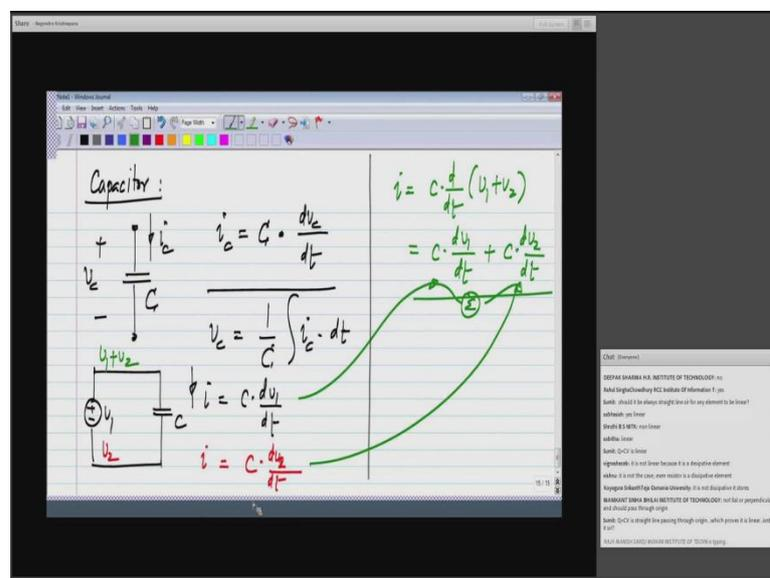 Share - Nagendra Krishnapura
Full Screen
Note1 - Windows Journal
Edit View Insert Actions Tools Help
Page Width
Capacitor:
+
v_c
-
i_c
C
i_c = C · dv_c/dt
v_c = 1/C ∫ i_c · dt
v_1+v_2
v_1
v_2
C
i = C · dv_1/dt
i = C · dv_2/dt
i = C · d/dt (v_1+v_2)
= C · dv_1/dt + C · dv_2/dt
Σ
15 / 15
Chat (Everyone)
DEEPAK SHARMA H.R. INSTITUTE OF TECHNOLOGY: no
Rahul SinghaChowdhury RCC Institute Of Information T: yes
Sumit: should it be always straight line sir for any element to be linear?
subhasish: yes linear
Shruthi B S NITK: non linear
sabitha: linear
Sumit: Q=CV is linear
vighneshwarab: it is not linear because it is a desipative element
vishnu: it is not the case, even resistor is a dissipative element
SrikanthTeja Osmania University: it is not dissipative it stores
MANIKANT SINHA BHILAI INSTITUTE OF TECHNOLOGY: not flat or perpendicular and should pass through origin
Sumit: Q=CV is straight line passing through origin, which proves it is linear,
it sir?